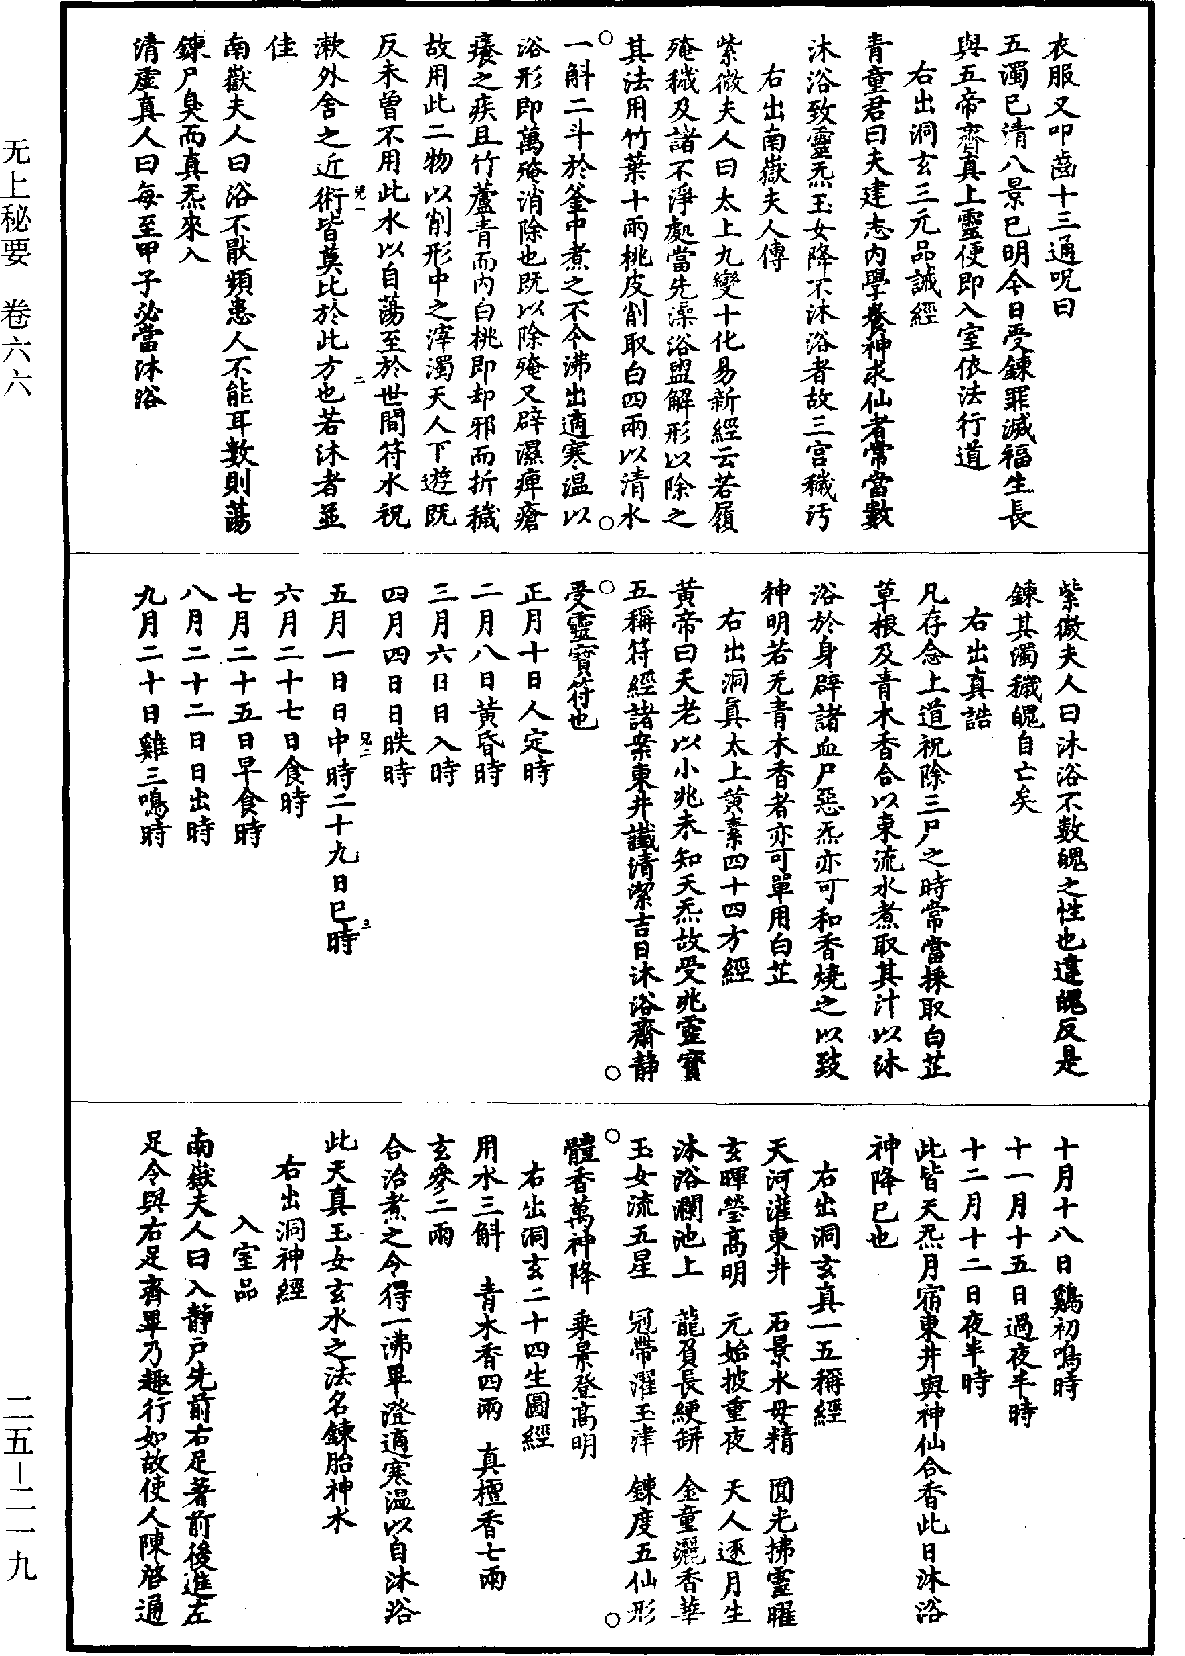 衣服又叩齒十三通呪曰
五濁已清八景已明今日受鍊罪滅福生長
與五帝齊真上靈便即入室依法行道
右出洞玄三元品誡經
青童君曰夫建志內學養神求仙者常當數
沐浴致靈炁玉女降不沐浴者故三宮穢污
右出南嶽夫人傳
紫微夫人曰太上九變十化易新經云若履
殗穢及諸不淨處當先澡浴盥解形以除之
其法用竹葉十兩桃皮削取白四兩以清水
一斛二斗於釜中煮之不令沸出適寒溫以
浴形即萬殗消除也既以除殗又辟濕痺瘡
癢之疾且竹蘆青而內白桃即却邪而折穢
故用此二物以削形中之滓濁天人下遊既
反未曾不用此水以自蕩至於世間符水祝
漱外舍之近術皆莫比於此方也若沐者並
佳
南嶽夫人曰浴不厭頻患人不能耳數則蕩
鍊尸臭而真炁來入
清虛真人曰每至甲子必當沐浴
紫微夫人曰沐浴不數魄之性也違魄反是
鍊其濁穢魄自亡矣
右出真誥
凡存念上道祝除三尸之時常當採取白芷
草根及青木香合以東流水煮取其汁以沐
浴於身辟諸血尸惡炁亦可和香燒之以致
神明若无青木香者亦可單用白芷
右出洞真太上黃素四十四方經
黃帝曰天老以小兆未知天炁故受兆靈寶
五稱符經諸案東井讖清潔吉日沐浴齋靜
受靈寶符也
正月十日人定時
二月八日黃昏時
三月六日日入時
四月四日日昳時
五月一日日中時二十九日巳時
六月二十七日食時
七月二十五日早食時
八月二十二日日出時
九月二十日雞三鳴時
十月十八日鷄初鳴時
十一月十五日過夜半時
十二月十二日夜半時
此皆天炁月宿東井與神仙合香此日沐浴
神降已也
右出洞玄真一五稱經
天河灌東井 石景水母精 圓光拂靈曜
玄暉瑩高明 元始披重夜 天人逐月生
沐浴瀾池上 龍負長綆缾 金童灑香華
玉女流五星 冠帶濯玉津 鍊度五仙形
體香萬神降 乘景登高明
右出洞玄二十四生圖經
用水三斛 青木香四兩 真檀香七兩
玄參二兩
合洽煮之令得一沸畢澄適寒溫以自沐浴
此天真玉女玄水之法名鍊胎神水
右出洞神經
入室品
南嶽夫人曰入靜戶先前右足著前後進左
足令與右足齊畢乃趣行如故使人陳啓通
无上秘要 卷六六
二五－二一九